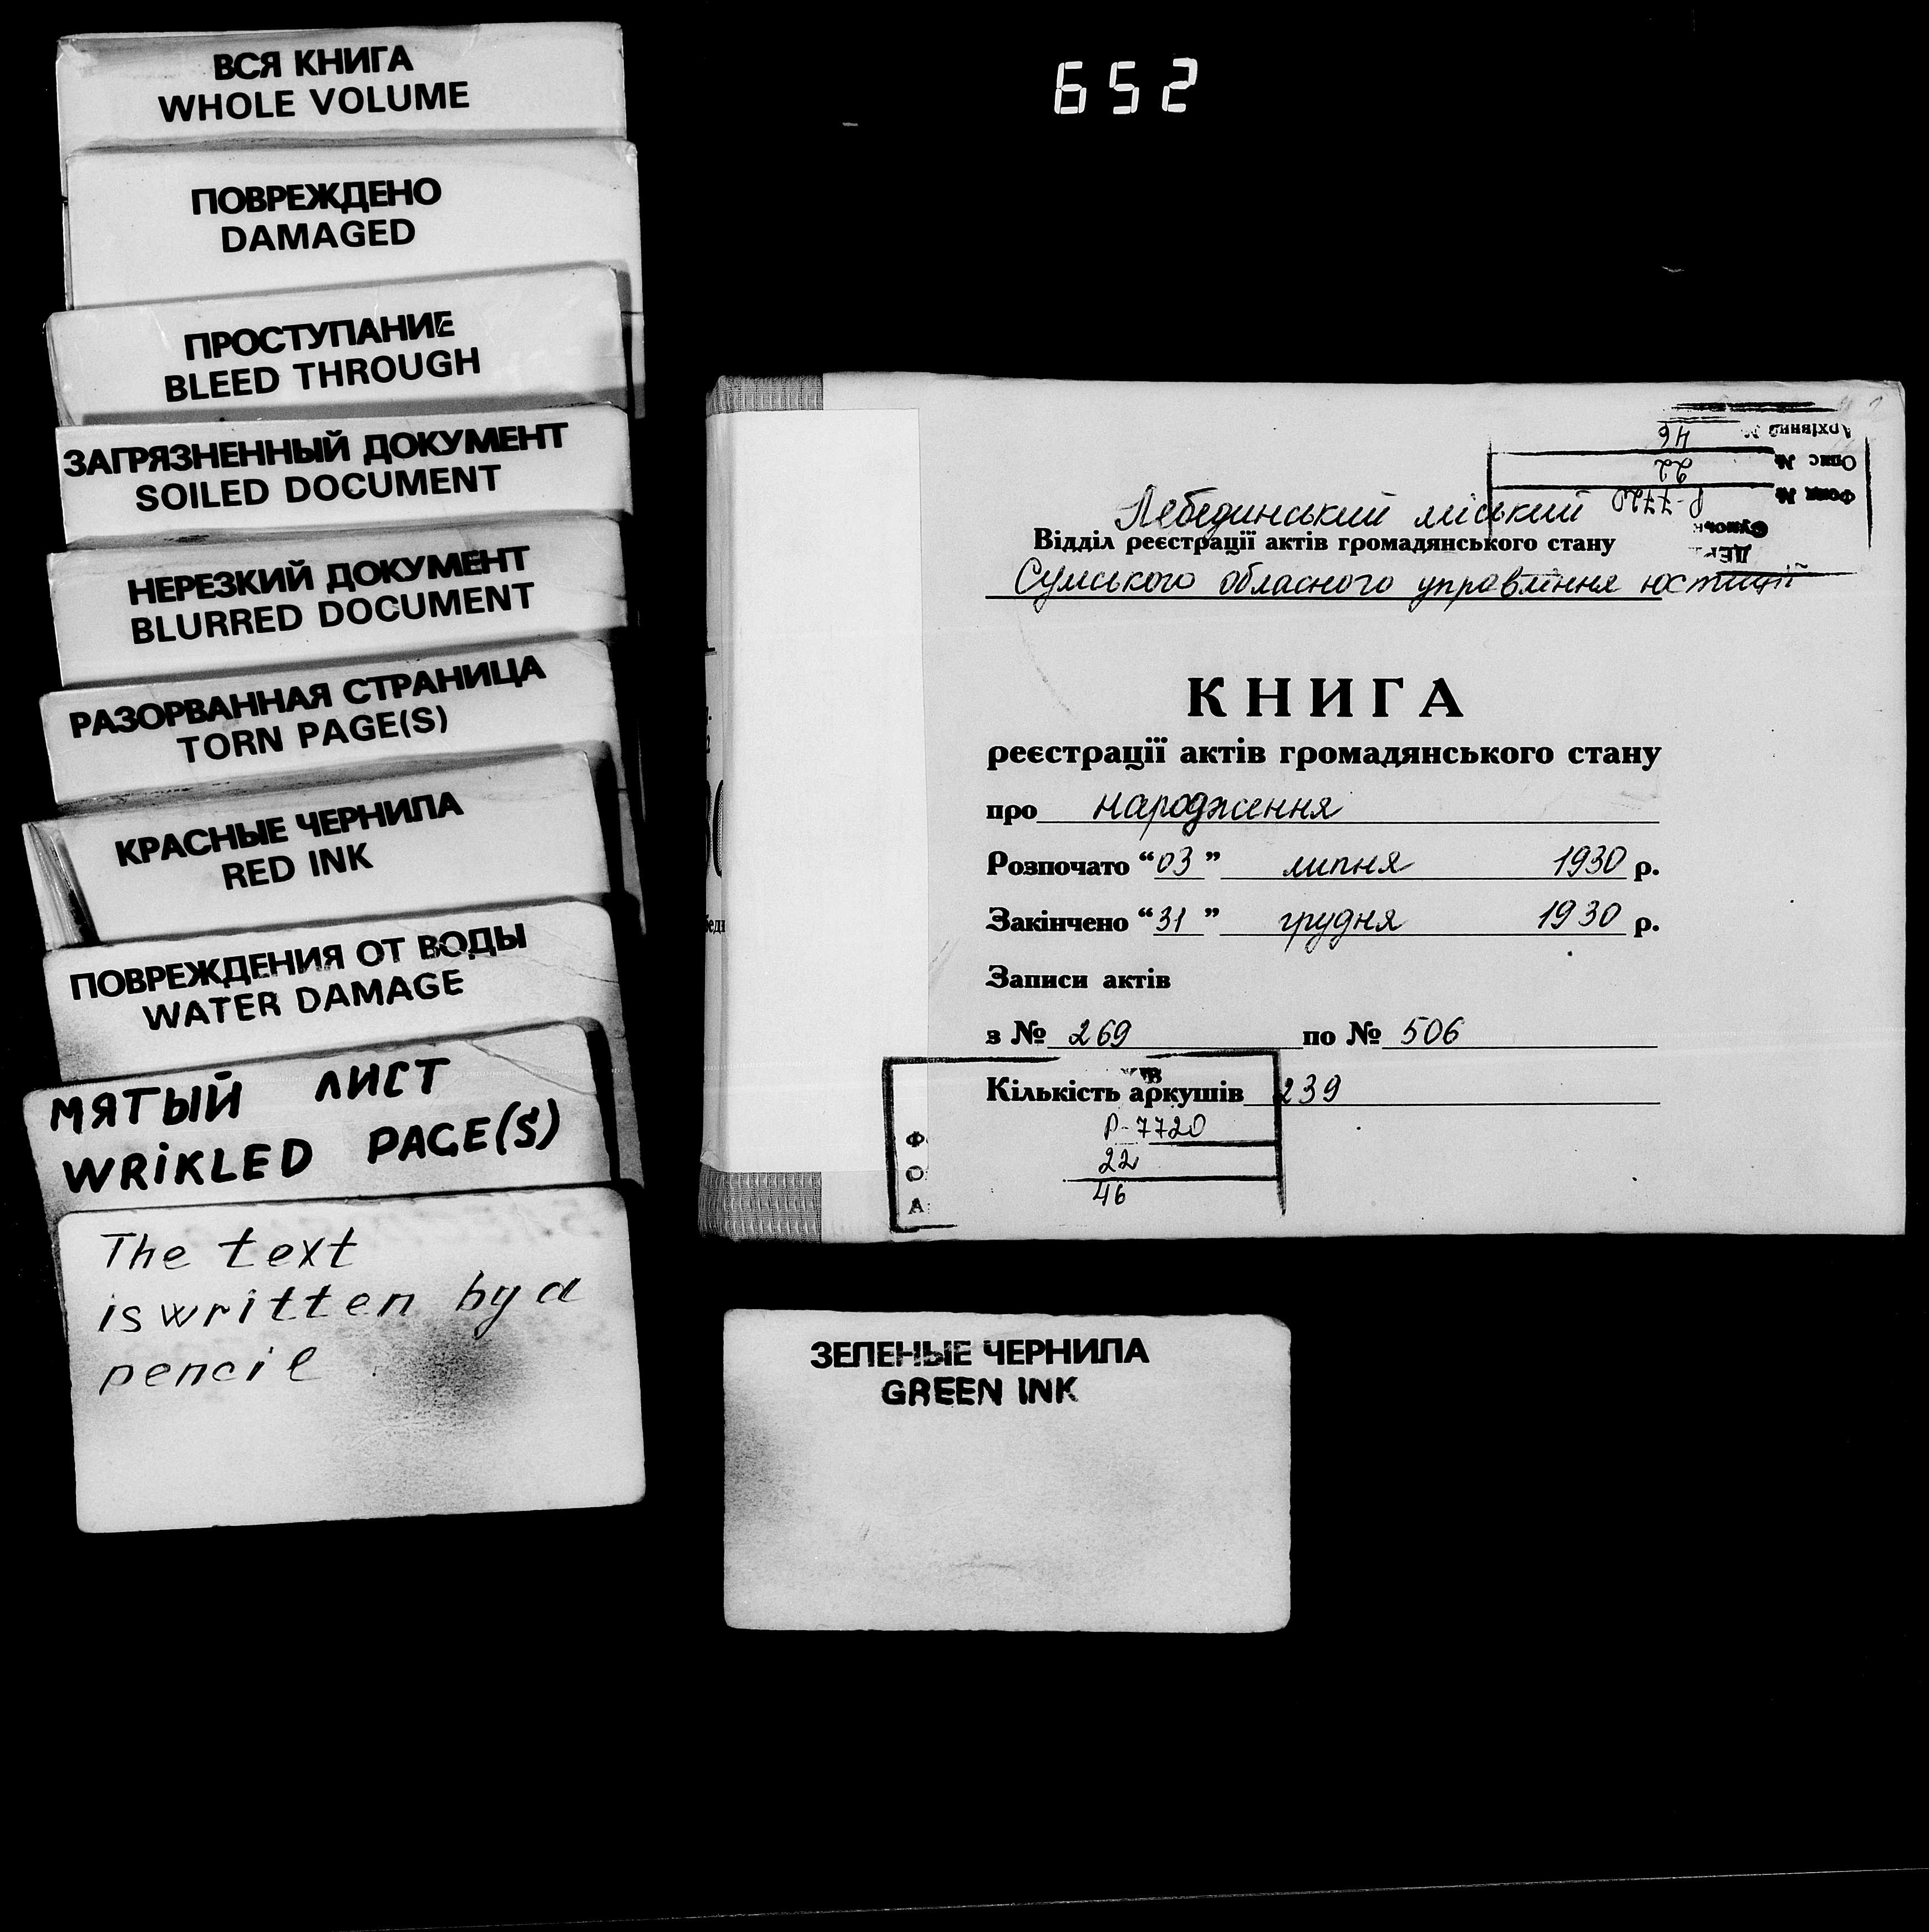 ВСЯ КНИГА
WHOLE VOLUME
ПОВРЕЖДЕНО
DAMAGED
ПРОСТУПАНИЕ
BLEED THROUGH
ЗАГРЯЗНЕННЫЙ ДОКУМЕНТ
SOILED DOCUMENT
НЕРЕЗКИЙ ДОКУМЕНТ
BLURRED DOCUMENT
РАЗОРВАННАЯ СТРАНИЦА
TORN PAGE(S)
КРАСНЫЕ ЧЕРНИЛА
RED INK
ПОВРЕЖДЕНИЯ ОТ ВОДЫ
WATER DAMAGE
МЯТЫЙ ЛИСТ
WRIKLED PAGE(S)
The text
is written by a
pencil
652
Фонд № Р-7720
Опис № 22
46
Лебединський міський
Відділ реєстрації актів громадянського стану
Сумського обласного управління юстиції
КНИГА
реєстрації актів громадянського стану
про народження
Розпочато "03" липня 1930 р.
Закінчено "31" грудня 1930 р.
Записи актів
з № 269 по № 506
Кількість аркушів 239
Ф Р-7720
О 22
А 46
ЗЕЛЕНЫЕ ЧЕРНИЛА
GREEN INK